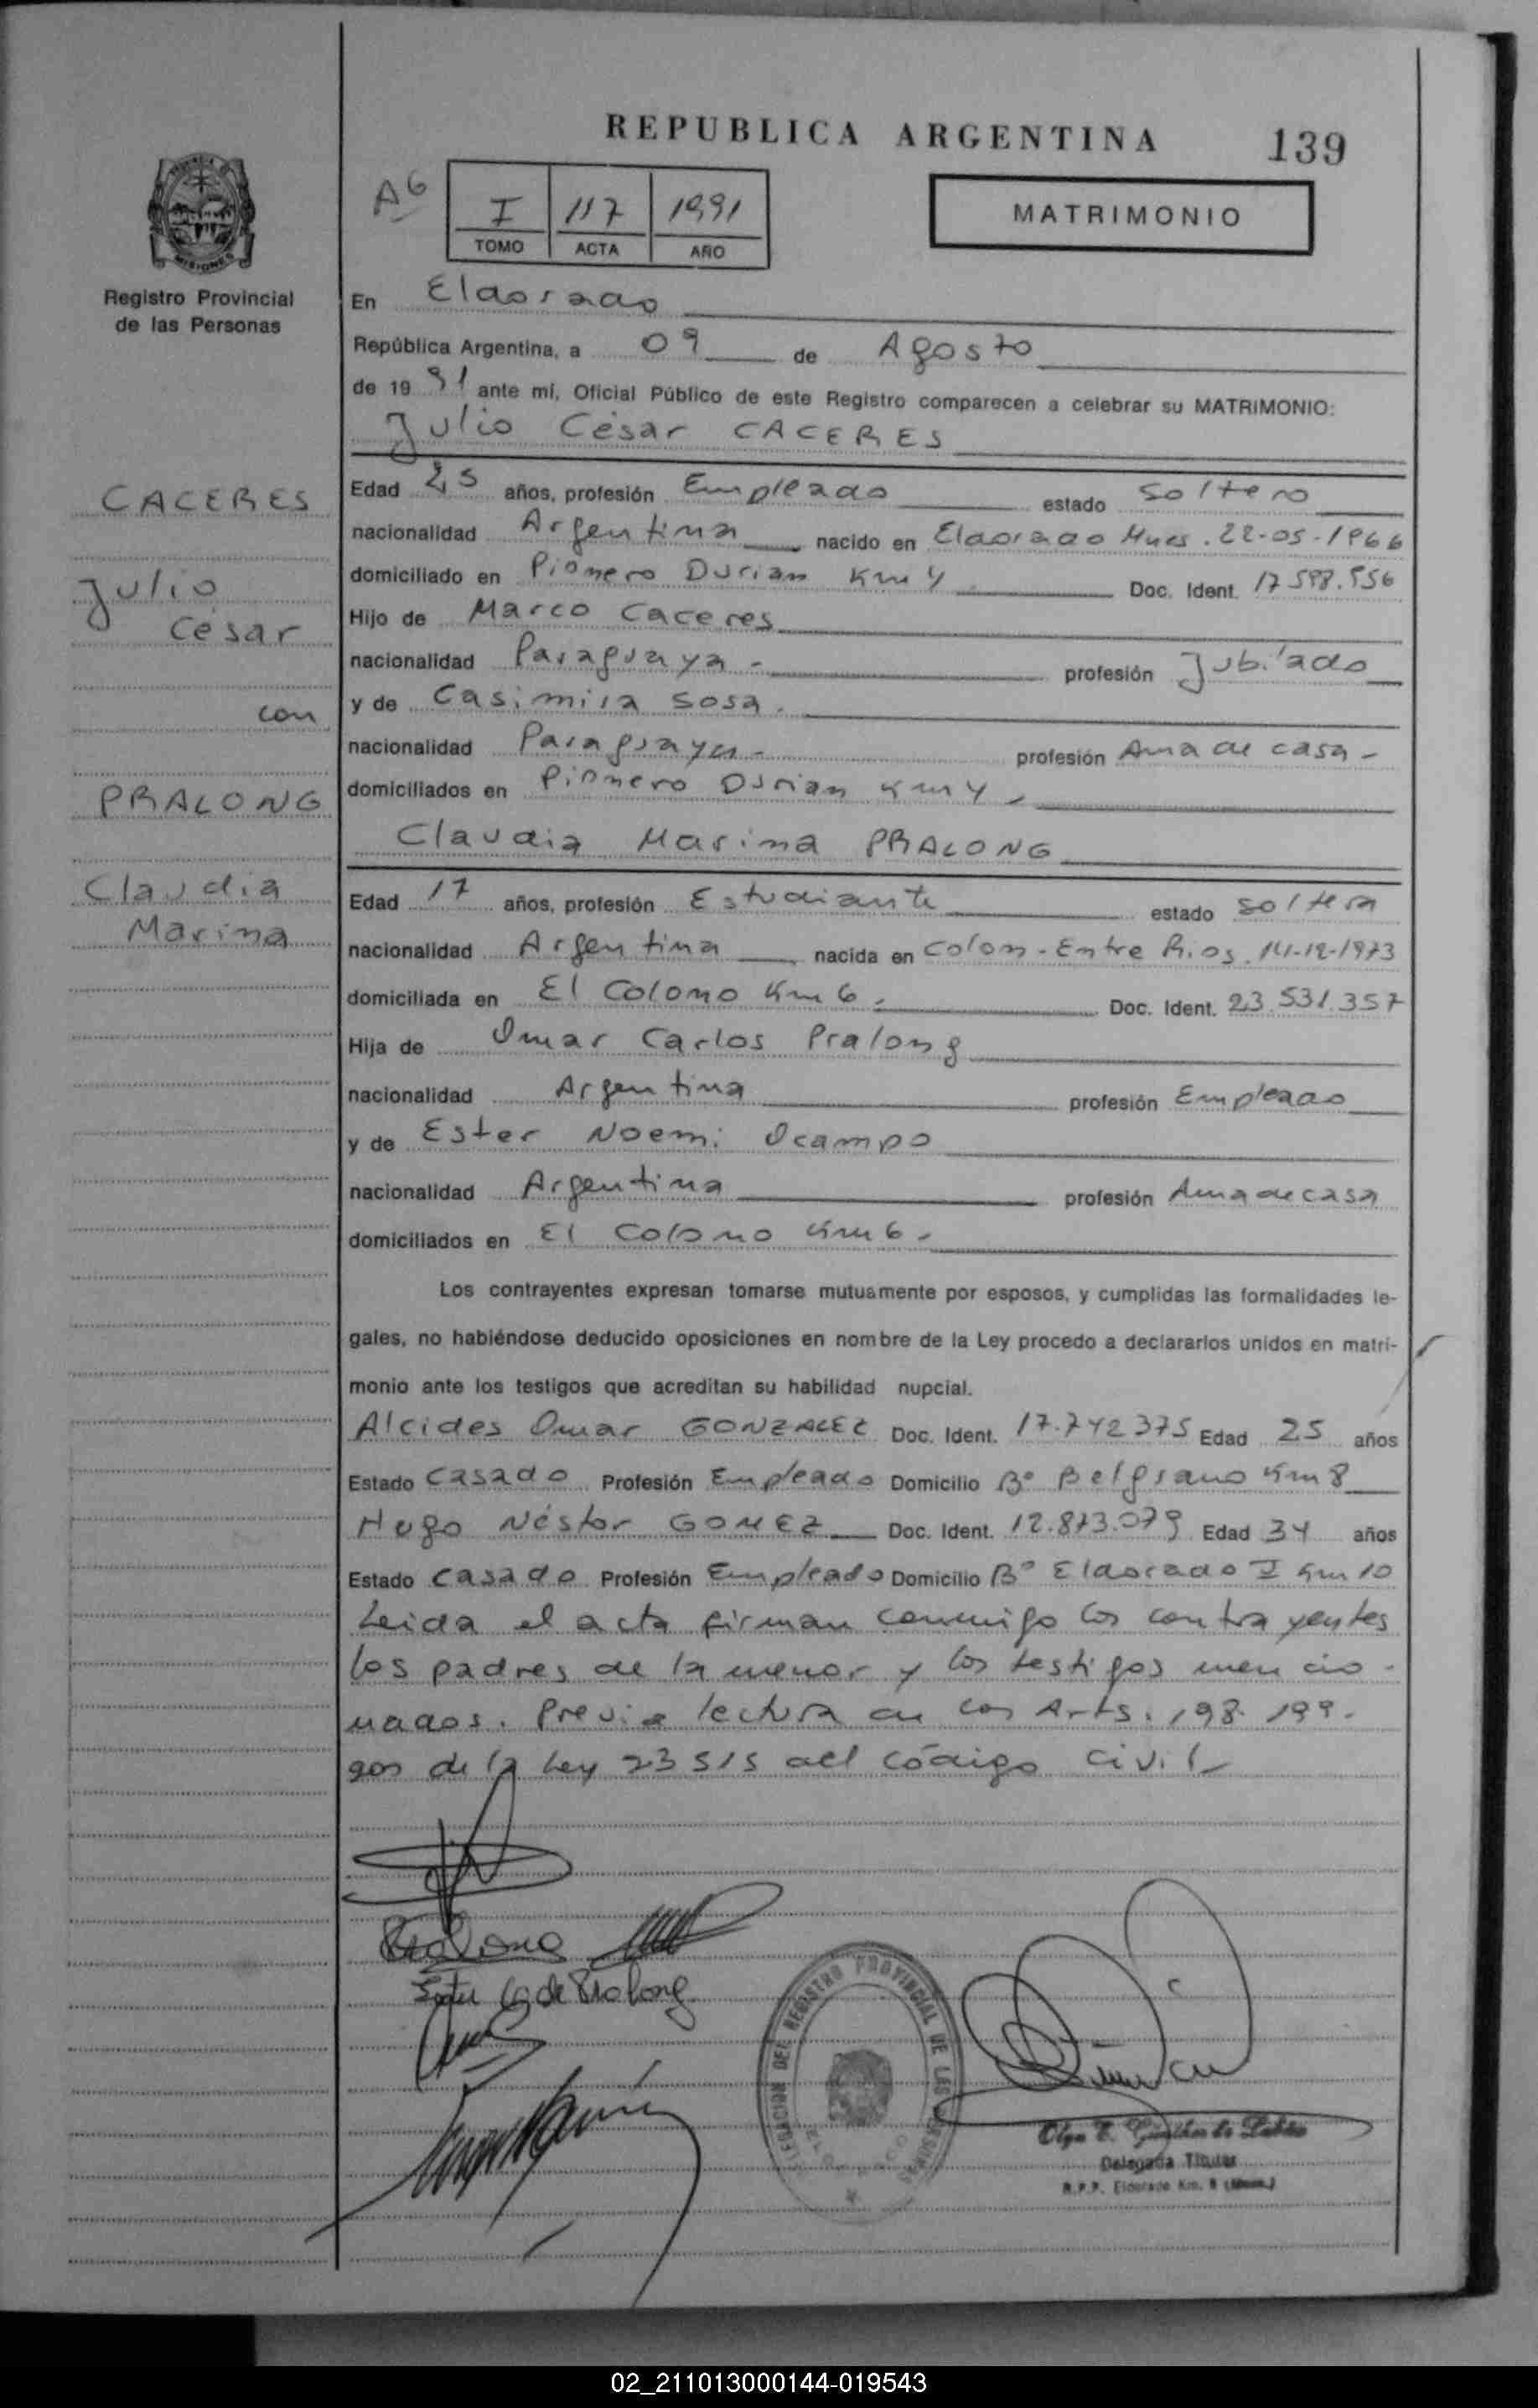 REPUBLICA ARGENTINA
139
A6
I 117 1991
TOMO ACTA AÑO
MATRIMONIO
MISIONES
Registro Provincial
de las Personas
En Eldorado
República Argentina, a 09 de Agosto
de 19 91 ante mí, Oficial Público de este Registro comparecen a celebrar su MATRIMONIO:
Julio César CACERES
CACERES
Julio
César
con
PRALONG
Claudia
Marina
Edad 25 años, profesión Empleado estado Soltero
nacionalidad Argentina nacido en Eldorado Mnes. 22-05-1966
domiciliado en Pionero Durian Km 4 Doc. Ident. 17.598.556
Hijo de Marco Caceres
nacionalidad Paraguaya - profesión Jubilado
y de Casimira Sosa.
nacionalidad Paraguaya - profesión Ama de casa -
domiciliados en Pionero Durian Km 4 -
Claudia Marina PRALONG
Edad 17 años, profesión Estudiante estado Soltera
nacionalidad Argentina nacida en Colon - Entre Rios. 14-12-1973
domiciliada en El Colono Km 6. Doc. Ident. 23.531.357
Hija de Omar Carlos Pralong
nacionalidad Argentina profesión Empleado
y de Ester Noemi Ocampo
nacionalidad Argentina profesión Ama de casa
domiciliados en El Colono Km 6 -
Los contrayentes expresan tomarse mutuamente por esposos, y cumplidas las formalidades le-
gales, no habiéndose deducido oposiciones en nombre de la Ley procedo a declararlos unidos en matri-
monio ante los testigos que acreditan su habilidad nupcial.
Alcides Omar GONZALEZ Doc. Ident. 17.742375 Edad 25 años
Estado Casado Profesión Empleado Domicilio Bº Belgrano Km 8
Hugo Néstor GOMEZ Doc. Ident. 12.873.079 Edad 34 años
Estado Casado Profesión Empleado Domicilio Bº Eldorado I Km 10
Leida el acta firman conmigo los contrayentes
los padres de la menor y los testigos mencio-
nados. Previa lectura de los Arts. 198. 199.
200 de la Ley 23515 del código civil
Pralong
Ester O de Pralong
DELEGACION DEL REGISTRO PROVINCIAL DE LAS PERSONAS
Delegada Titular
R.P.P. Eldorado Km. 9 (Mnes.)
02_211013000144-019543